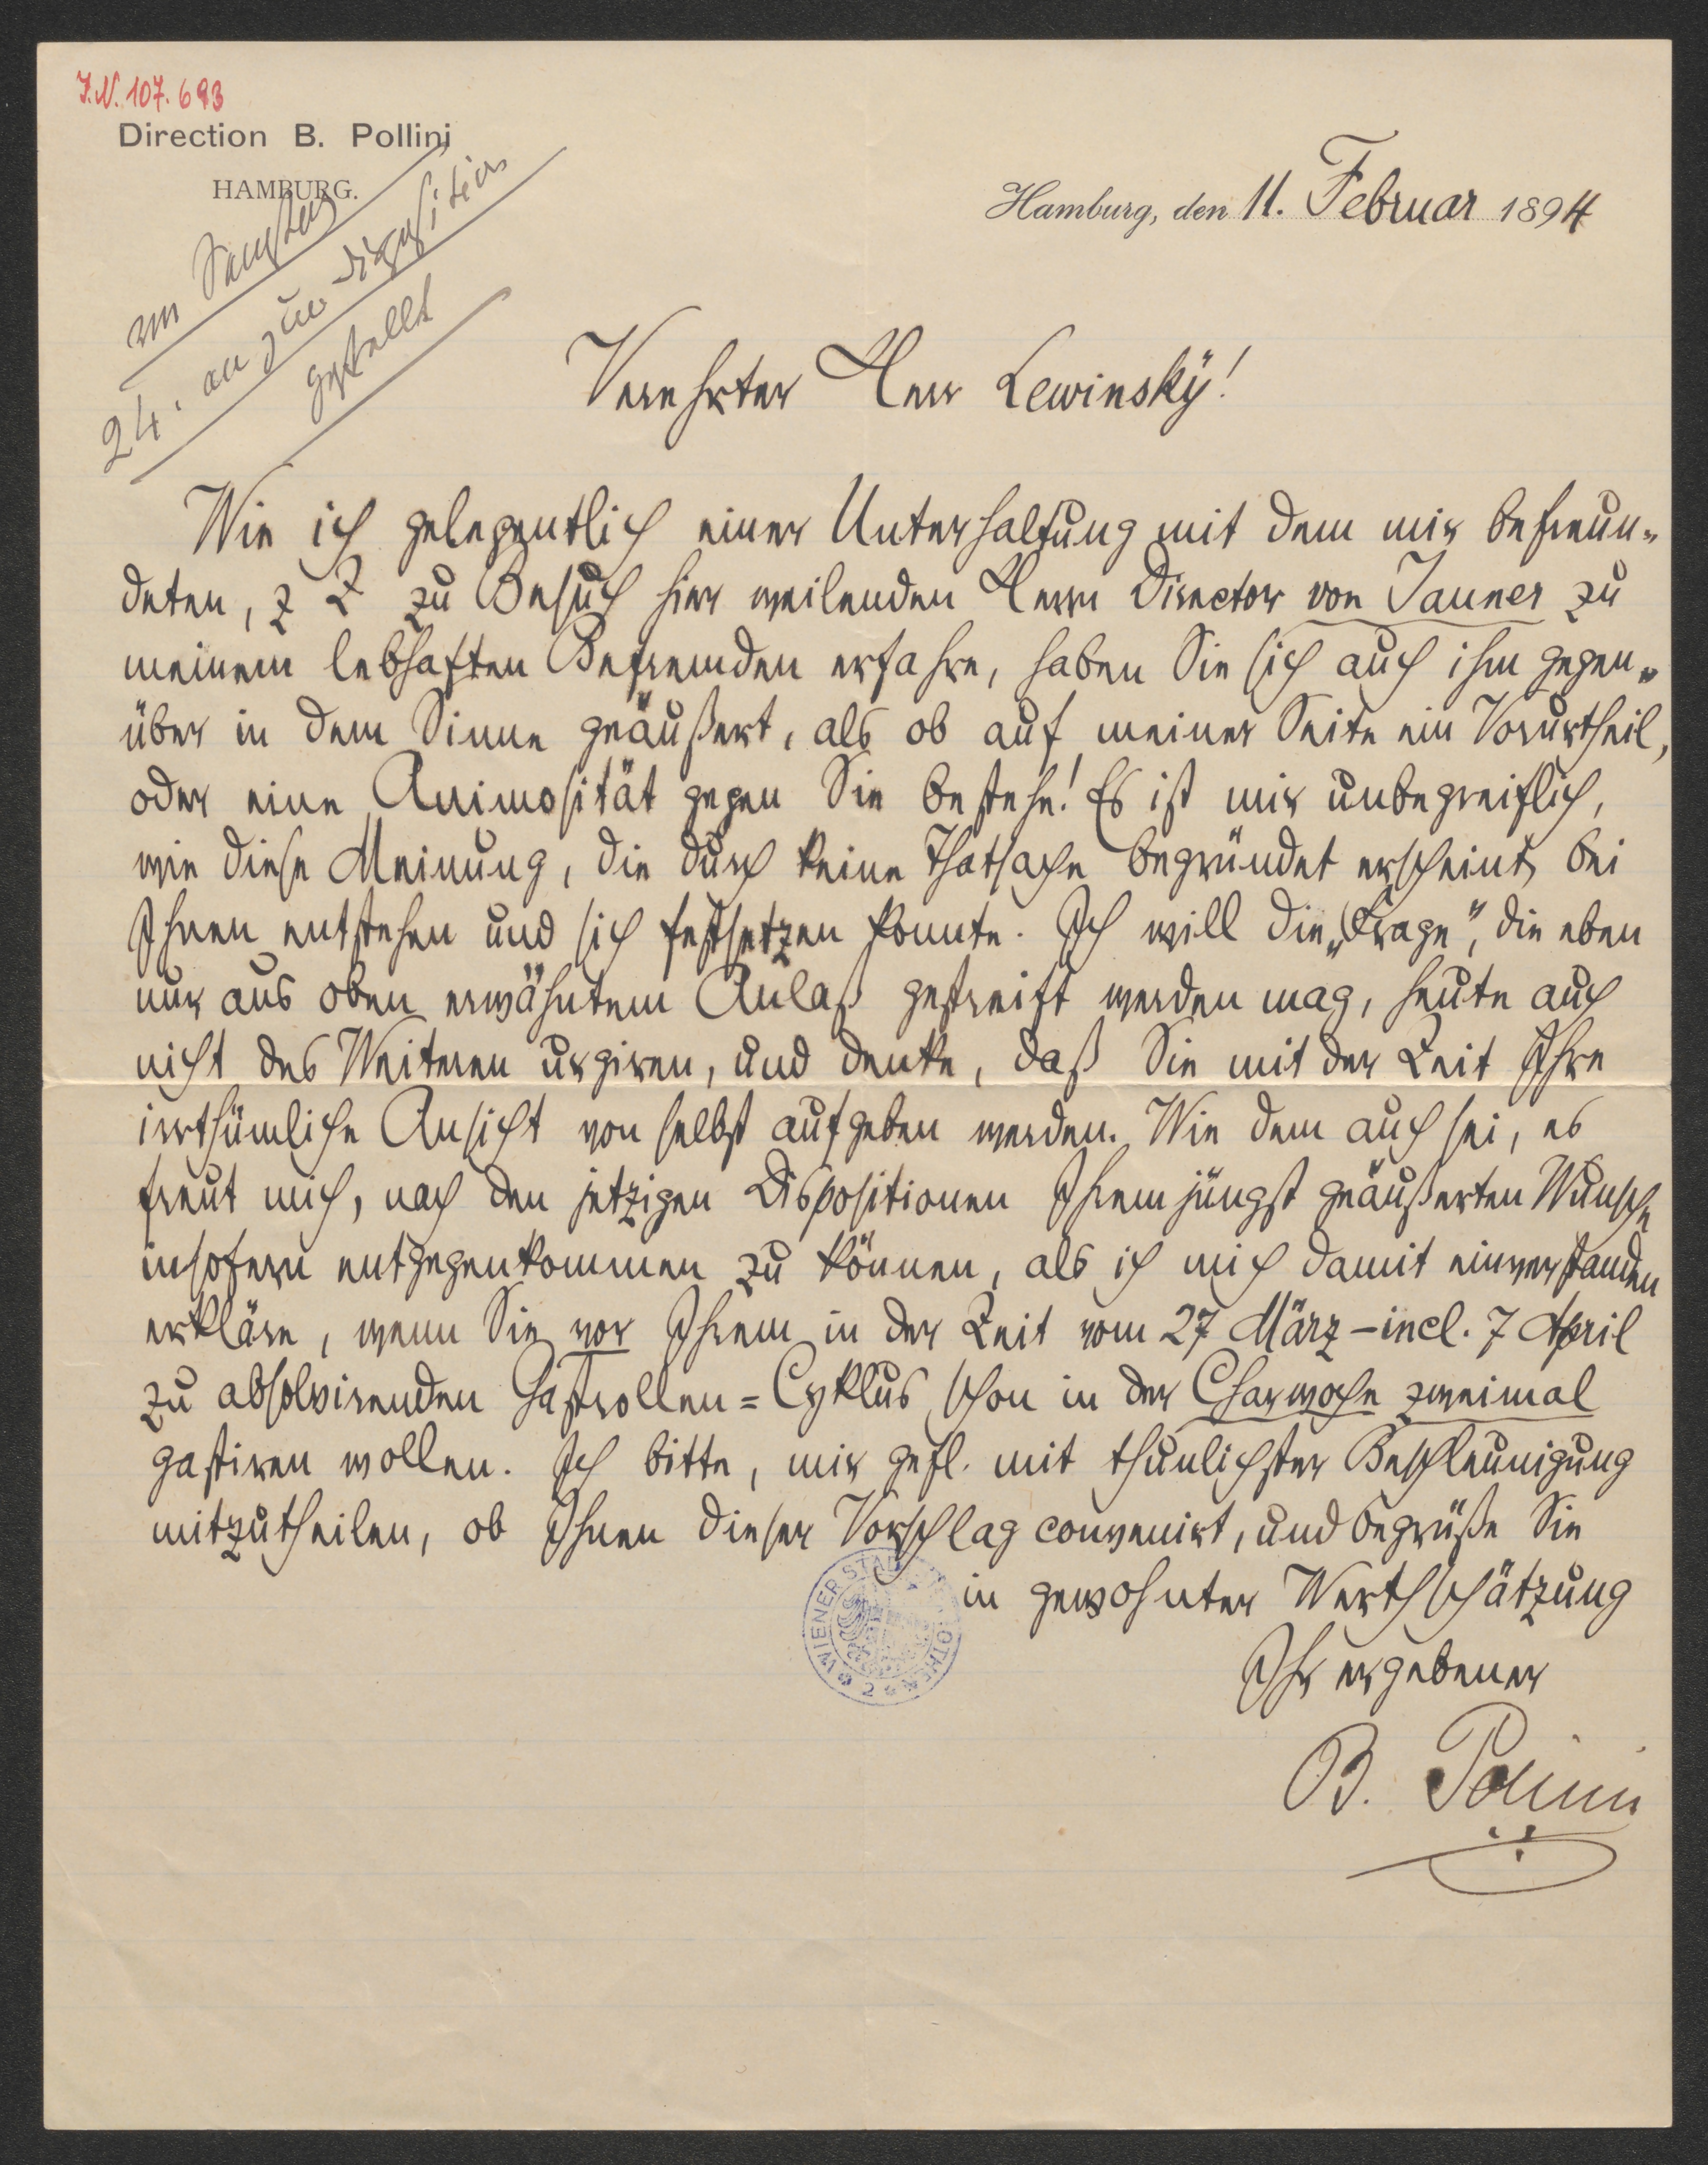 I.N. 107.693
Direction B. Pollini
HAMBURG.
Hamburg, den 11. Februar 1894
am Samstag
24. an zur Disposition
gestellt
Verehrter Herr Lewinsky!
Wie ich gelegentlich einer Unterhaltung mit dem mir befreun-
deten, z Z zu Besuch hier weilenden Herrn Director von Jauner zu
meinem lebhaften Befremden erfahre, haben Sie sich auch ihm gegen-
über in dem Sinne geäußert, als ob auf meiner Seite ein Vorurtheil,
oder eine Animosität gegen Sie bestehe! Es ist mir unbegreiflich,
wie diese Meinung, die durch keine Thatsache begründet erscheint, bei
Ihnen entstehen und sich festsetzen konnte. Ich will die „Frage", die eben
nur aus oben erwähntem Anlaß gestreift werden mag, heute auch
nicht des Weiteren urgiren, und denke, daß Sie mit der Zeit Ihre
irrthümliche Ansicht von selbst aufgeben werden. Wie dem auch sei, es
freut mich, nach den jetzigen Dispositionen Ihrem jüngst geäußerten Wunsche
insofern entgegenkommen zu können, als ich mich damit einverstanden
erkläre, wenn Sie vor Ihrem in der Zeit vom 27 März – incl. 7 April
zu absolvirenden Gastrollen=Cyklus schon in der Charwoche zweimal
gastiren wollen. Ich bitte, mir gefl. mit thunlichster Beschleunigung
mitzutheilen, ob Ihnen dieser Vorschlag convenirt, und begrüße Sie
in gewohnter Werthschätzung
Ihr ergebener
B. Pollini
WIENER STADTBIBLIOTHEK